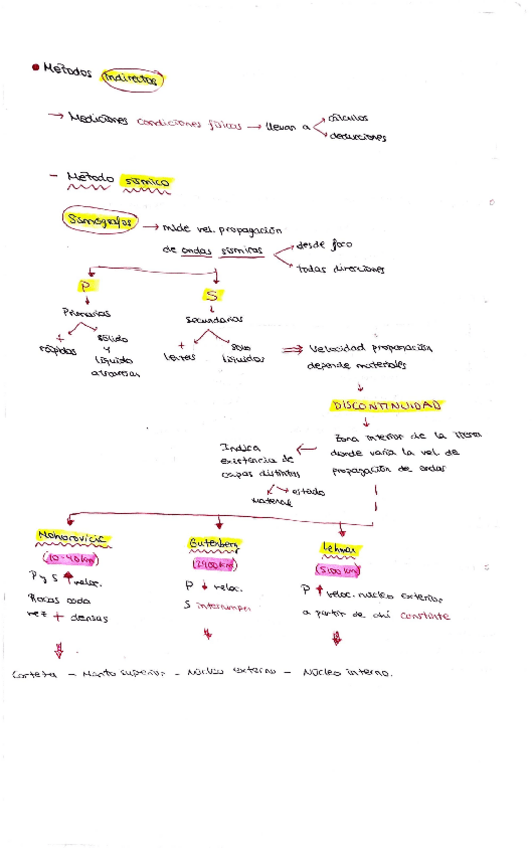 • Métodos indirectos
→ Mediciones condiciones físicas → llevan a cálculos
deducciones
- Método sísmico
Sismógrafos → mide vel. propagación
de ondas sísmicas
desde foco
todas direcciones
P S
Primarias secundarias
+ rápidas
sólido
y
líquido
atraviesan
+ lentas
solo
líquidos
⇒ Velocidad propagación
depende materiales
DISCONTINUIDAD
Zona interior de la tierra
donde varía la vel de
propagación de ondas
Indica
existencia de
capas distintas
estado
material
Mohorovicic
(10-40km)
P y S ↑ veloc.
Rocas cada
vez + densas
Gutenberg
(2900km)
P ↓ veloc.
S interrumpen
Lehman
(5100 km)
P ↑ veloc. nucleo exterior
a partir de ahí constante
Corteza - Manto superior - Núcleo externo - Núcleo interno.